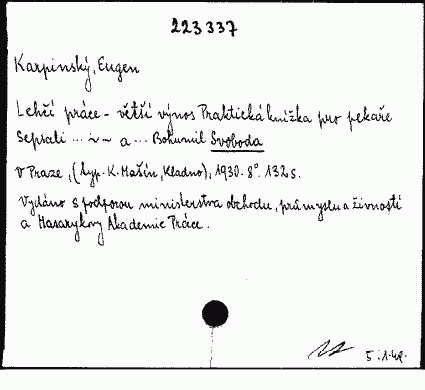 223337
Karpinský, Eugen
Lehčí práce - větší výnos Praktická knížka pro pekaře
Sepsali ... ~ ~ a ... Bohumil Svoboda
V Praze, (typ. K. Mašín, Kladno), 1930. 8°. 132 s.
Vydáno s podporou ministerstva obchodu, průmyslu a živností
a Masarykovy Akademie Práce.